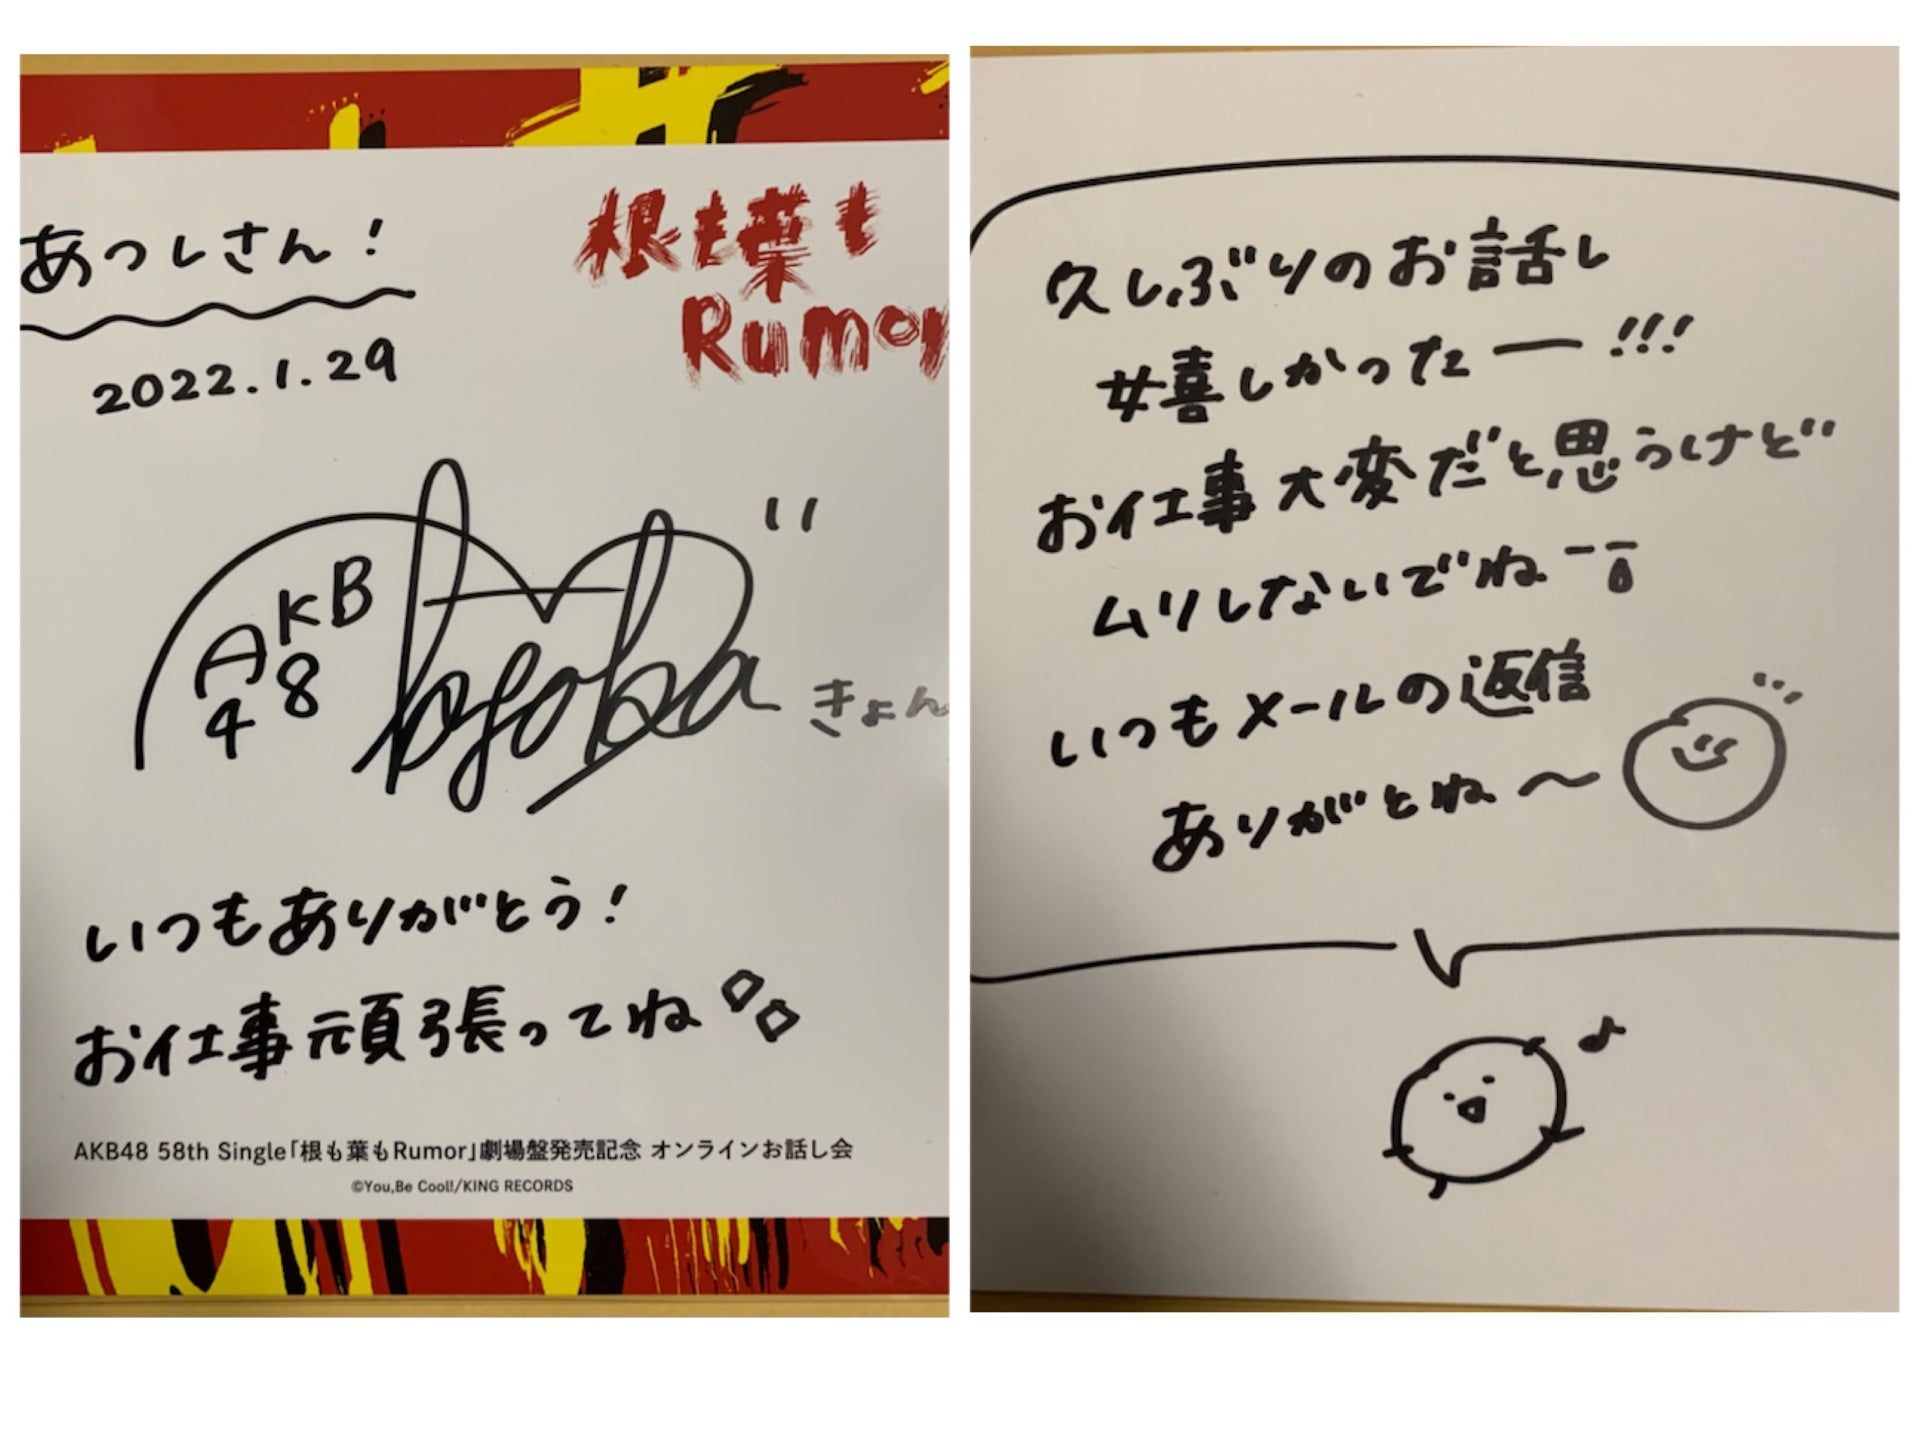 あつしさん!
根も葉も
Rumor
2022.1.29
AKB
48
きょん
いつもありがとう!
お仕事頑張ってね
AKB48 58th Single「根も葉もRumor」劇場盤発売記念 オンラインお話し会
©You,Be Cool!/KING RECORDS
久しぶりのお話し
嬉しかったー!!!
お仕事大変だと思うけど
ムリしないでね
いつもメールの返信
ありがとね〜